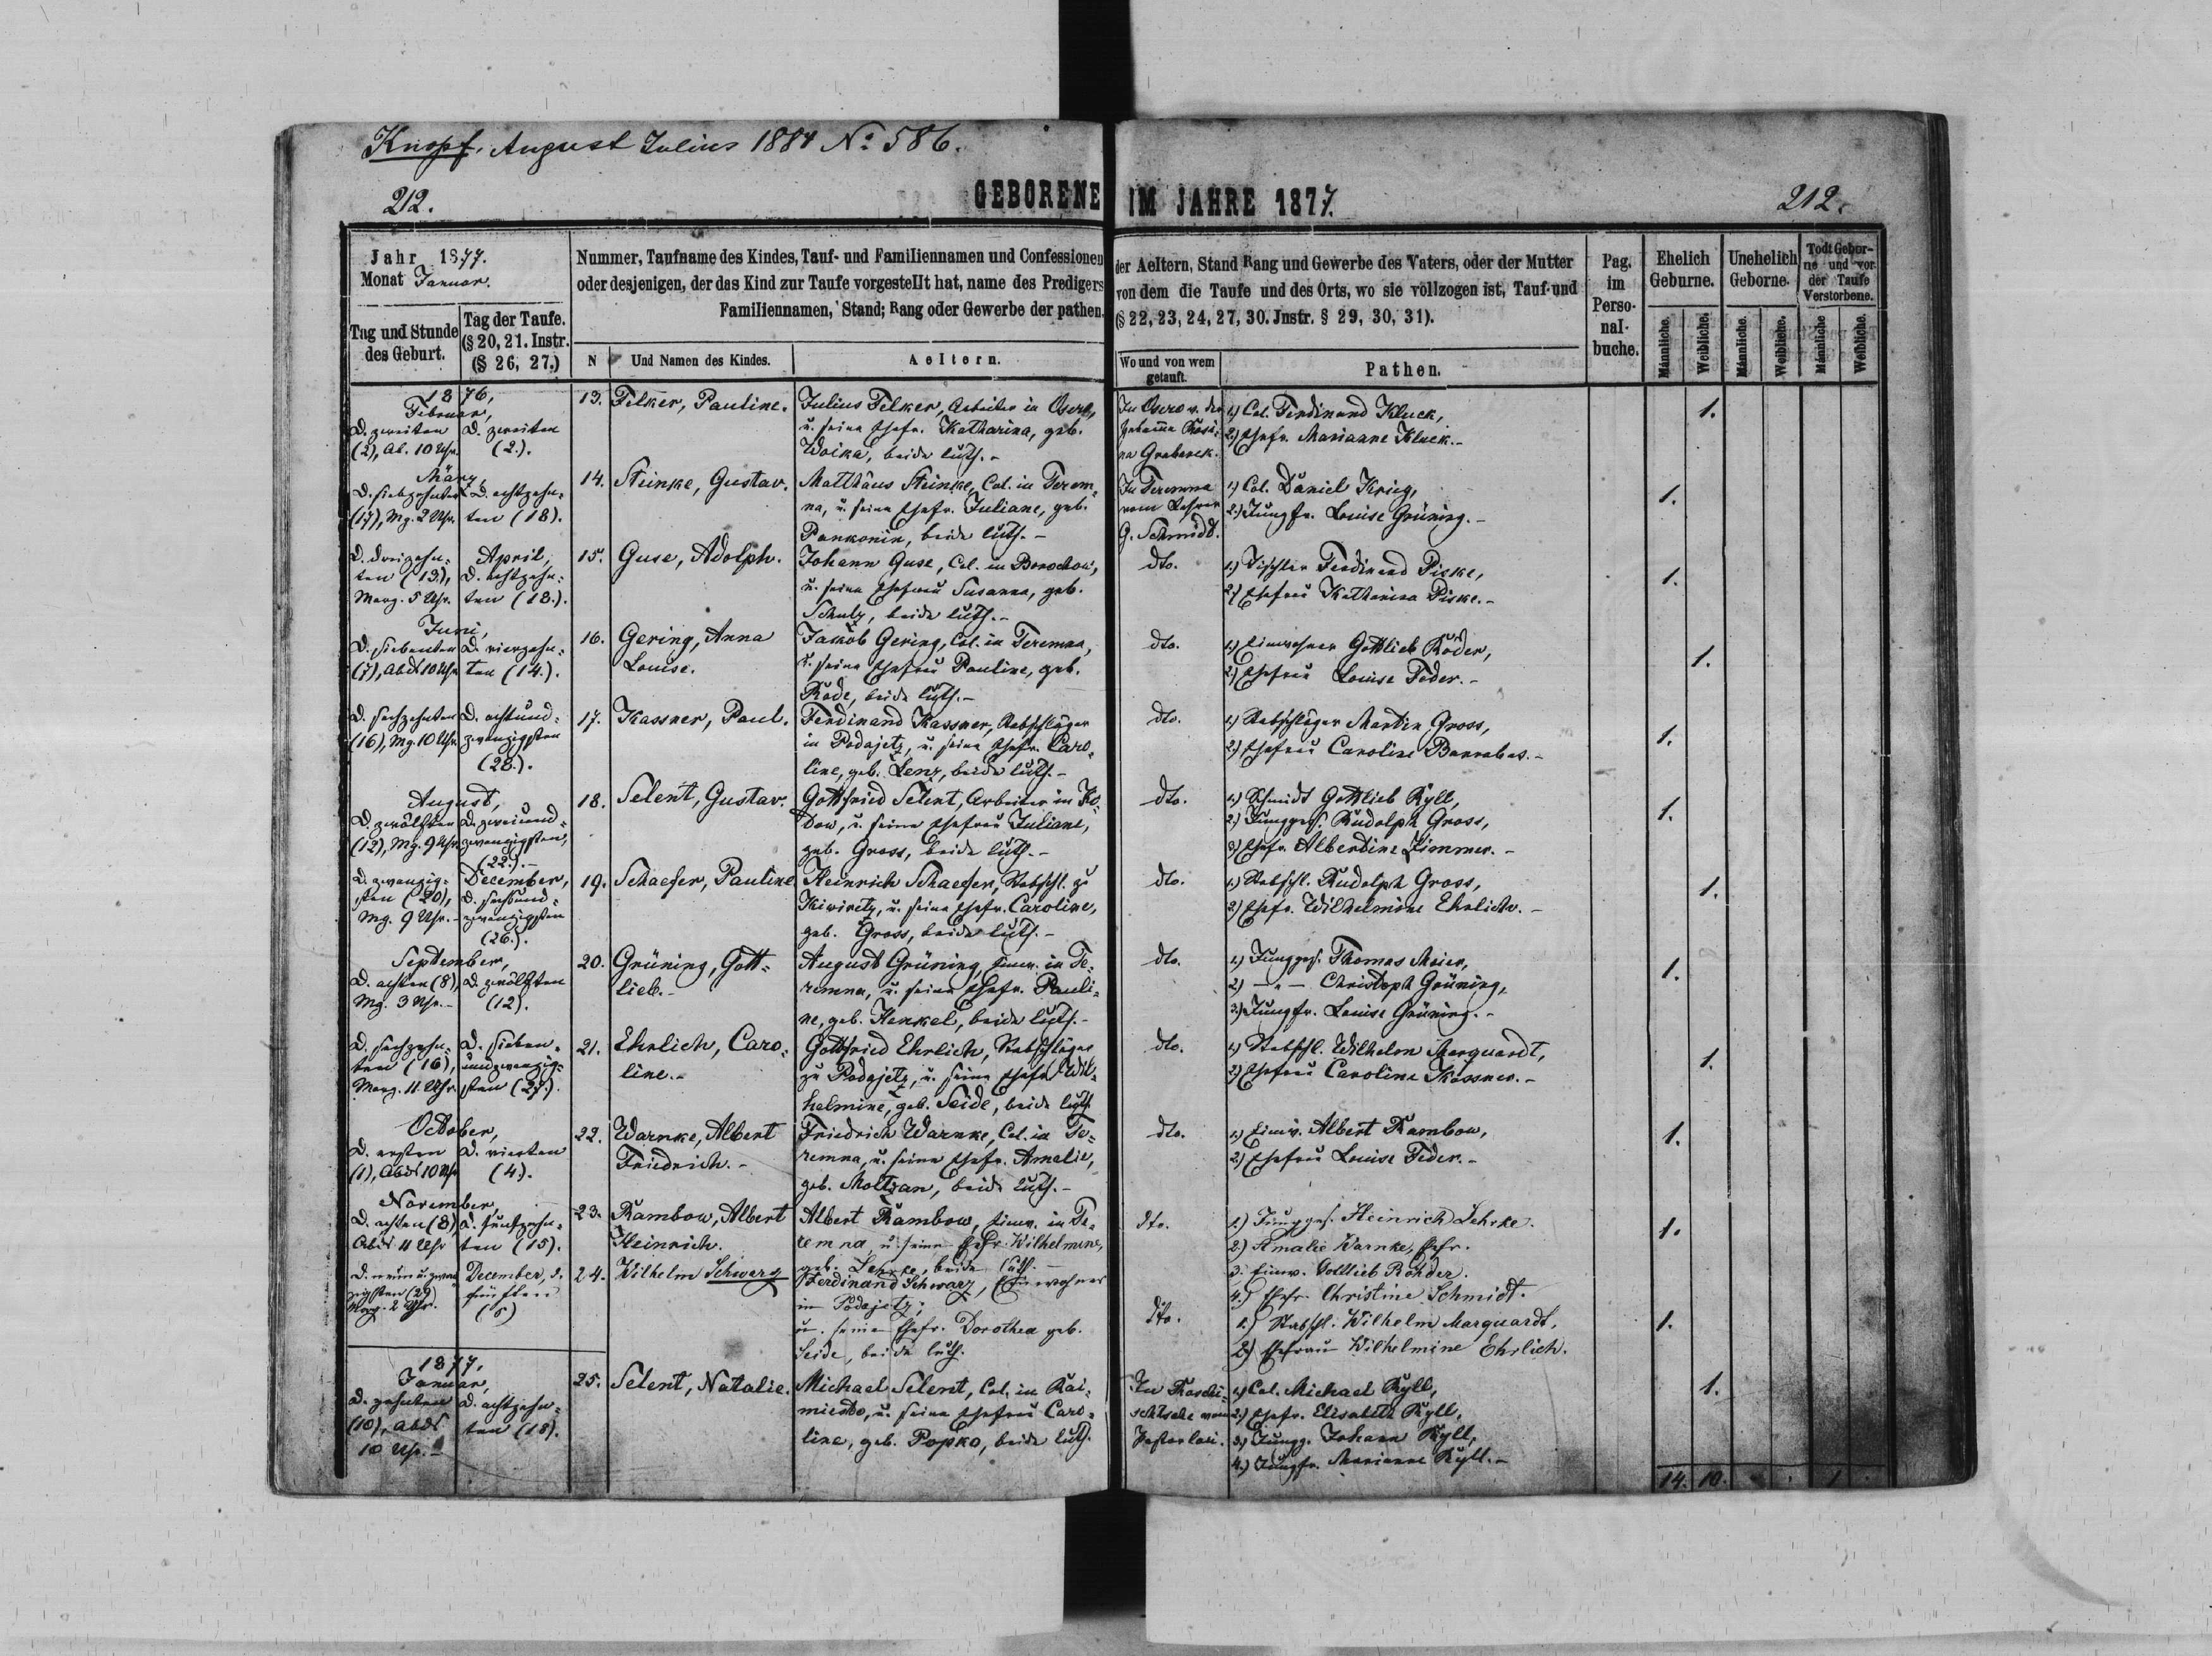 Knopf, August Julius 1884 No 586.
212.
GEBORENE IM JAHRE 1877.
212.
Jahr 1877.
Monat Januar.
Tag und Stunde
des Geburt.
Tag der Taufe.
(§ 20, 21. Instr.
(§ 26, 27.)
Nummer, Taufname des Kindes, Tauf- und Familiennamen und Confessionen
oder desjenigen, der das Kind zur Taufe vorgestellt hat, name des Predigers
Familiennamen, Stand; Rang oder Gewerbe der pathen.
N
Und Namen des Kindes.
Aeltern.
der Aeltern, Stand Rang und Gewerbe des Vaters, oder der Mutter
von dem die Taufe und des Orts, wo sie vollzogen ist, Tauf-und
(§ 22, 23, 24, 27, 30. Jnstr. § 29, 30, 31).
Wo und von wem
getauft.
Pathen.
Pag.
im
Perso-
nal-
buche.
Ehelich
Geburne.
Unehelich
Geborne.
Todt Gebor-
ne und vor
der Taufe
Verstorbene.
Männliche.
Weibliche.
Männliche.
Weibliche.
Männliche
Weibliche.
1876,
Februar,
D. zweiten
(2), Ab. 10 Uhr.
D. zweiten
(2.).
13. Felker, Pauline.
Julius Felker, Arbeiter in Osero,
u. seine Ehefr. Katharina, geb.
Woika, beide luth. -
In Osero v. der
Hebamme Rosi-
na Graberek.
1.) Col. Ferdinand Kluck,
2.) Ehefr. Marianne Kluck. -
1.
März,
D. siebzehnten
(17), Mg. 2 Uhr.
D. achtzehn-
ten (18).
14. Steinke, Gustav.
Matthäus Steinke, Col. in Terem-
na, u. seine Ehefr. Juliane, geb.
Pankonin, beide luth. -
In Teremna
vom Lehrer
G. Schmidt.
1.) Col. Daniel Krieg,
2.) Jungfr. Louise Grüning. -
1.
D. dreizehn-
ten (13.),
Morg. 5 Uhr.
April,
D. achtzehn-
ten (18.).
15. Guse, Adolph.
Johann Guse, Col. in Borochow,
u. seine Ehefrau Susanna, geb.
Schulz, beide luth. -
dto.
1.) Tischler Ferdinand Piske,
2.) Ehefrau Katharina Piske. -
1.
Juni,
D. siebenten
(7), Abds 10 Uhr
D. vierzehn-
ten (14.).
16. Gering, Anna
Louise.
Jakob Gering, Col. in Teremna,
u. seine Ehefrau Pauline, geb.
Rode, beide luth. -
dto.
1.) Einwohner Gottlieb Röder,
2.) Ehefrau Louise Feder. -
1.
D. sechzehnten
(16), Mg. 10 Uhr.
D. achtund-
zwanzigsten
(28.).
17. Kassner, Paul.
Ferdinand Kassner, Stabschläger
in Podajetz, u. seine Ehefr. Caro-
line, geb. Lenz, beide luth. -
dto.
1.) Stabschläger Martin Gross,
2.) Ehefrau Caroline Barrabas. -
1.
August,
D. zwölften
(12), Mg. 9 Uhr
D. zweiund-
zwanzigsten,
(22.). -
18. Selent, Gustav.
Gottfried Selent, Arbeiter in Ko-
dow, u. seine Ehefrau Juliane,
geb. Gross, beide luth. -
dto.
1.) Schmidt Gottlieb Ryll,
2.) Jungges. Rudolph Gross,
3.) Ehefr. Albertine Zimmer. -
1.
D. zwanzig-
sten (20),
Mg. 9 Uhr. -
December,
D. sechsund-
zwanzigsten
(26.).
19. Schaefer, Pauline
Heinrich Schaefer, Stabschl. zu
Kiwiretz, u. seine Ehefr. Caroline,
geb. Gross, beide luth. -
dto.
1.) Stabschl. Rudolph Gross,
2.) Ehefr. Wilhelmine Ehrlich. -
1.
September,
D. achten (8),
Mg. 3 Uhr. -
D. zwölften
(12).
20. Grüning, Gott-
lieb. -
August Grüning, Einw. in Te-
remna, u. seine Ehefr. Pauli-
ne, geb. Henkel, beide luth. -
dto.
1.) Jungges. Thomas Meier,
2.) -"- Christoph Grüning,
3.) Jungfr. Louise Grüning. -
1.
D. sechzehn-
ten (16),
Morg. 11 Uhr.
D. sieben-
undzwanzig-
sten (27).
21. Ehrlich, Caro-
line. -
Gottfried Ehrlich, Stabschläger
zu Podajetz, u. seine Ehefr. Wil-
helmine, geb. Seide, beide luth.
dto.
1.) Stabschl. Wilhelm Marquardt,
2.) Ehefrau Caroline Kassner. -
1.
October,
D. ersten
(1), Abds 10 Uhr
D. vierten
(4).
22. Warnke, Albert
Friedrich. -
Friedrich Warnke, Col. in Te-
remna, u. seine Ehefr. Amalie,
geb. Moltzan, beide luth. -
dto.
1.) Einw. Albert Rambow,
2.) Ehefrau Louise Feder. -
1.
November,
D. achten (8)
Abds 11 Uhr
D. fünfzehn-
ten (15).
23. Rambow, Albert
Heinrich.
Albert Rambow, Einw. in Te-
remna, u. seine Ehefr. Wilhelmine,
geb. Lehrke, beide luth. -
dto.
1.) Jungges. Heinrich Lehrke.
2.) Amalie Warnke, Ehfr.
3. Einw. Gottlieb Röhder.
4.) Ehefr. Christine Schmidt.
1.
(29)
Morg. 2 Uhr.
December, d.
fünften
(5)
24. Wilhelm Schwarz
Ferdinand Schwarz, Einwohner
in Podajetz;
u. seine Ehefr. Dorothea geb.
Seide, beide luth.
dto.
1.) Stabschl. Wilhelm Marquardt,
2.) Ehefrau Wilhelmine Ehrlich.
1.
1877,
Januar,
D. zehnten
(10), Abds
10 Uhr. -
D. achtzehn-
ten (18).
25. Selent, Natalie.
Michael Selent, Col. in Kai-
miesto, u. seine Ehefrau Caro-
line, geb. Popko, beide luth.
In Roschi-
schtsche vom
Pastor loci.
1.) Col. Michael Ryll,
2.) Ehefr. Elisabeth Ryll,
3.) Jungg. Johann Ryll,
4.) Jungfr. Marianne Ryll. -
1.
14. 10. 1